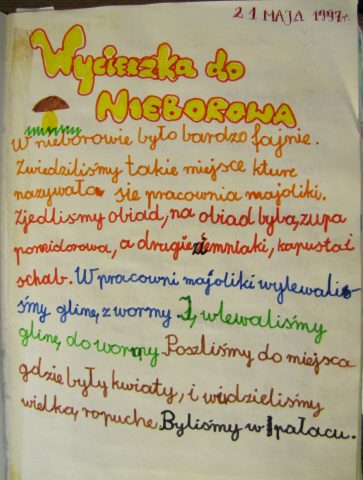 21 MAJA 1997r.
Wycieszka do
NIEBOROWA
W nieborowie było bardzo fajnie.
Zwiedziliśmy takie miejsce kture
nazywało się pracownia majoliki.
Zjedlismy obiad, na obiad była, zupa
pomidorowa, a drugie ziemniaki, kapusta i
schab. W pracowni majoliki wylewali-
śmy glinę, z wormy. I, wlewaliśmy
glinę, do wormy. Poszliśmy do miejsca
gdzie były kwiaty, i widzieliśmy
wielką, ropuche. Byliśmy w pałacu.